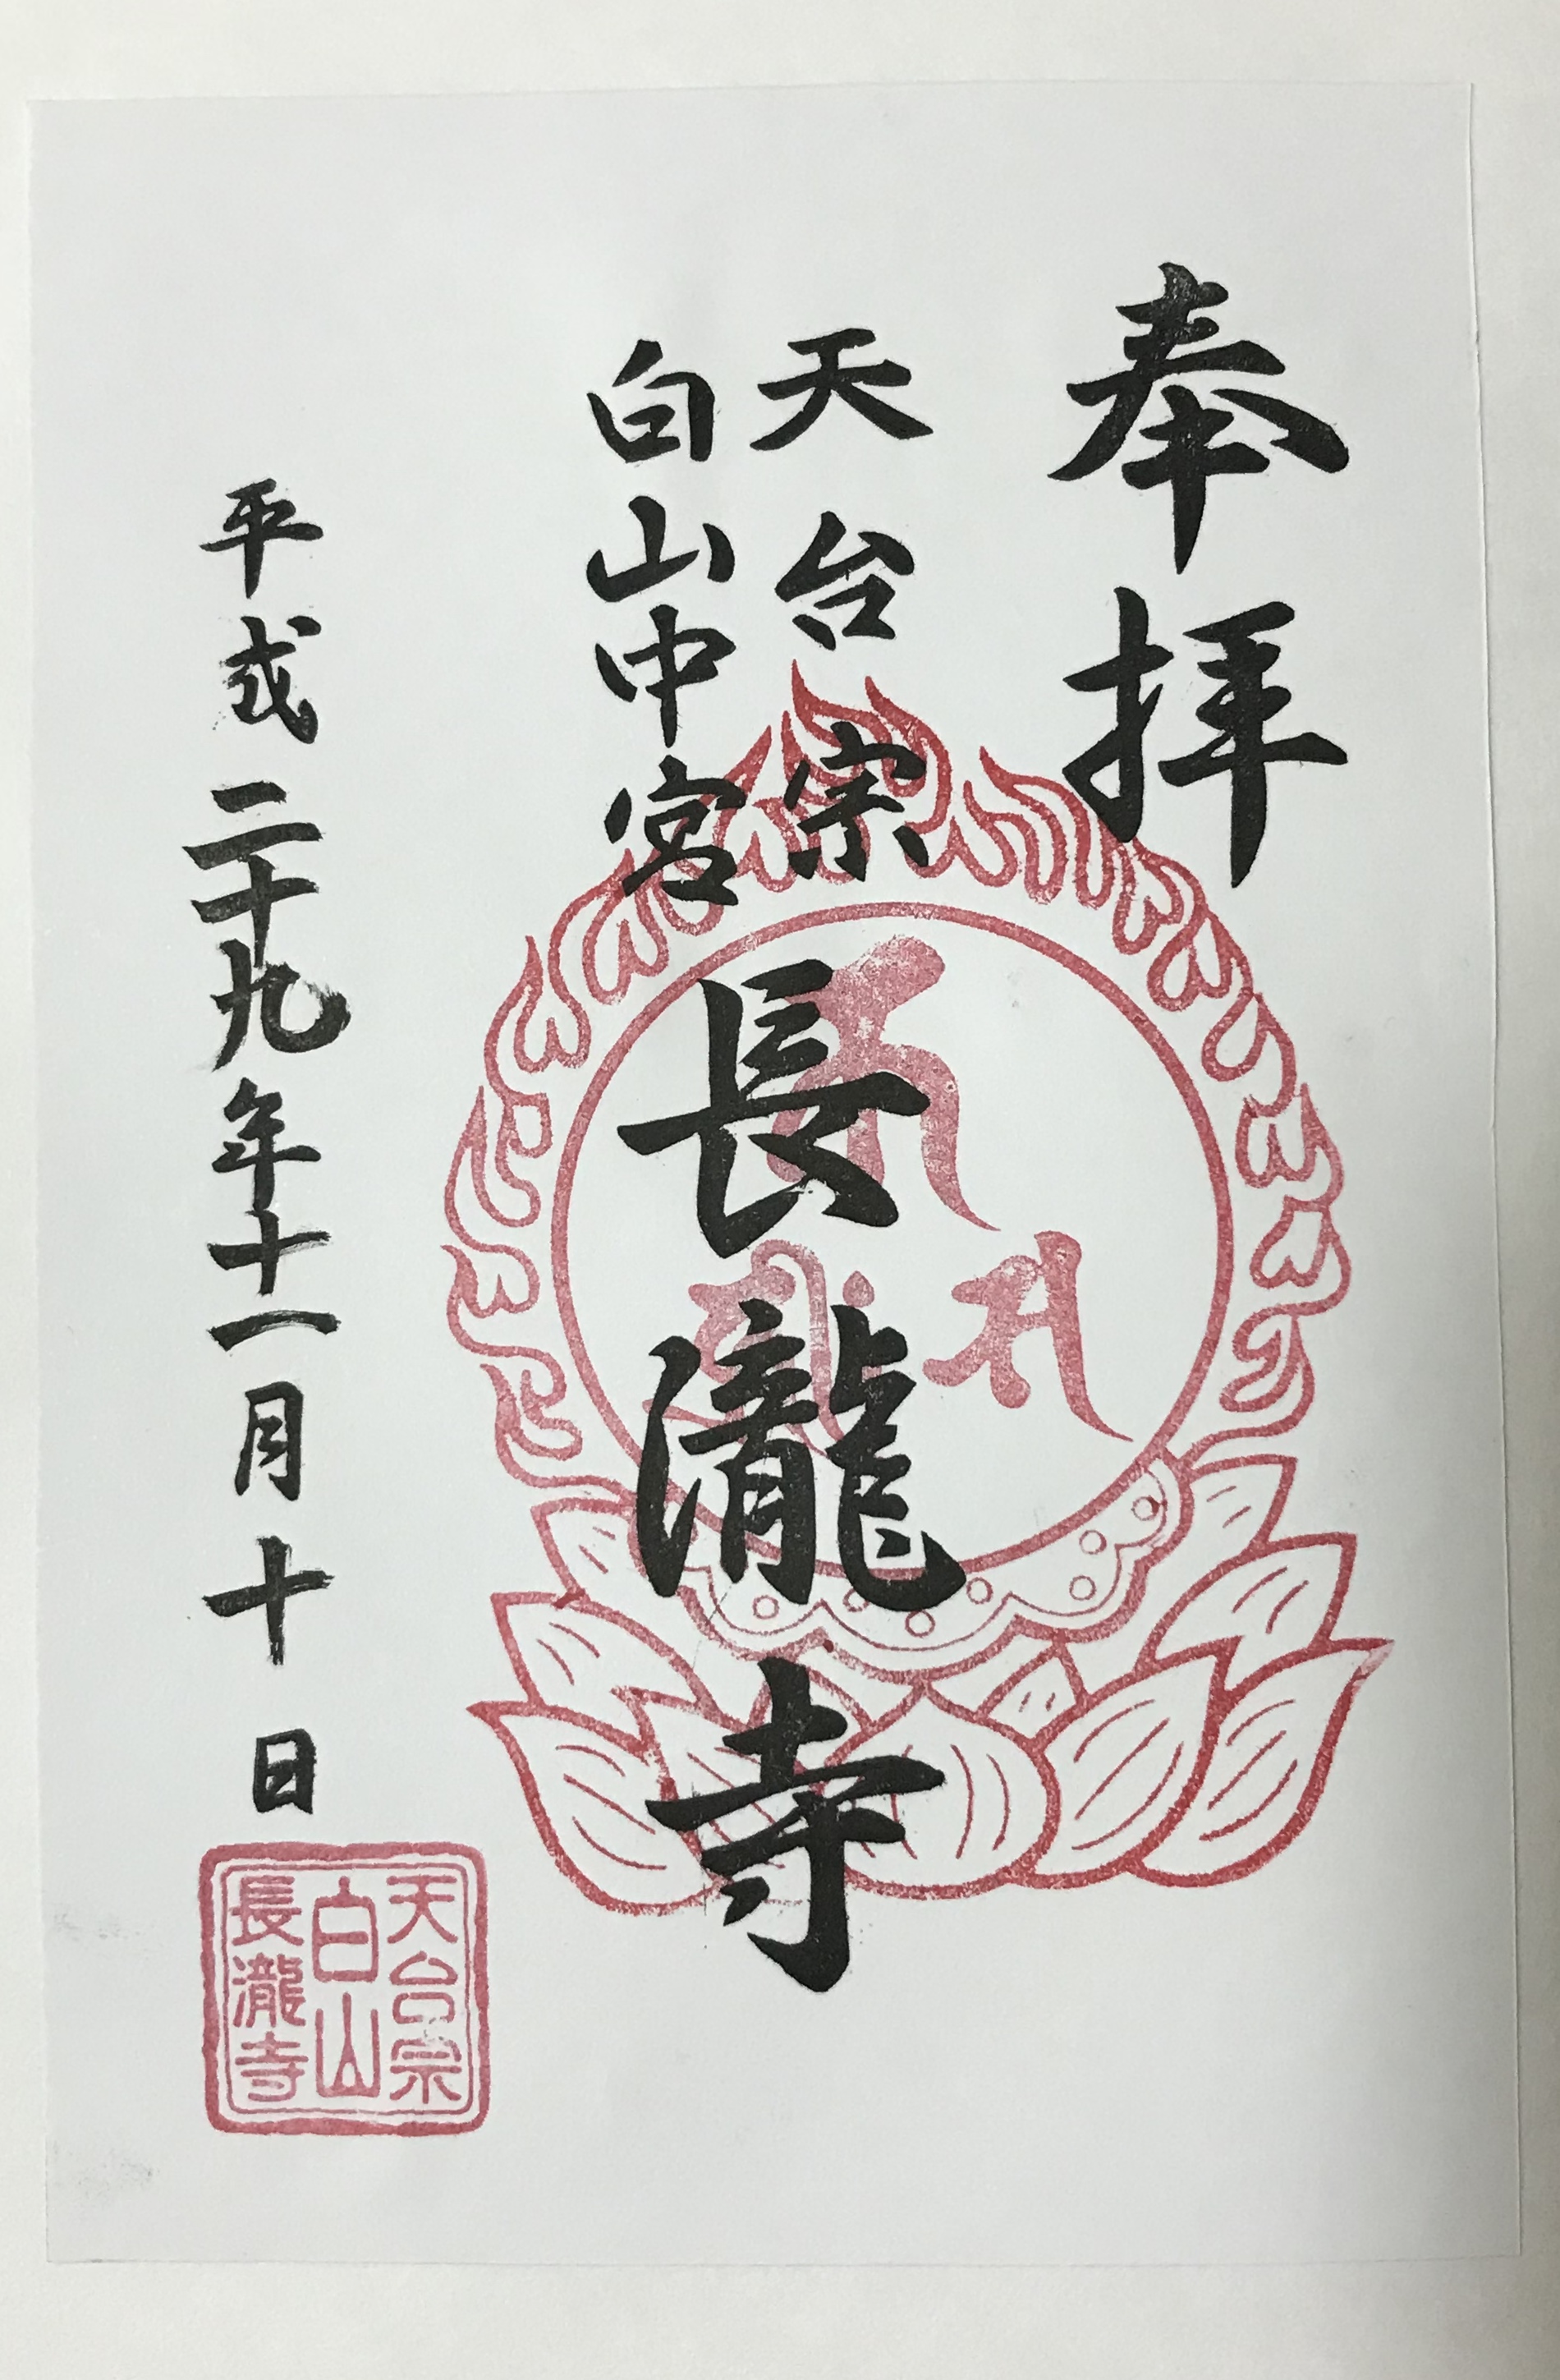 奉拝
天台宗
白山中宮
長瀧寺
平成二十九年十一月十日
天台宗
白山
長瀧寺